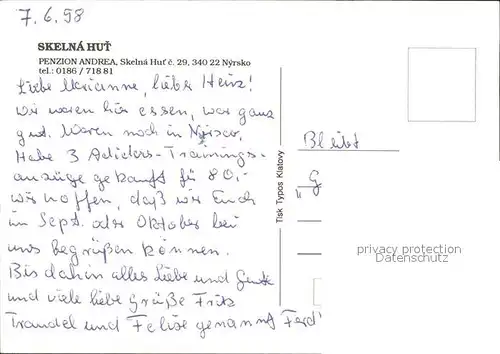 7.6.98
SKELNÁ HUŤ
PENZION ANDREA, Skelná Huť č. 29, 340 22 Nýrsko
tel.: 0186 / 718 81
Liebe Marianne, lieber Heinz!
Wir waren hier essen, war ganz
gut. Waren noch in Nyrsco.
Habe 3 Adidas-Trainings-
anzüge gekauft für 80,-
wir hoffen, daß wir Euch
im Sept. oder Oktober bei
uns begrüßen können.
Bis dahin alles liebe und Gute
und viele liebe Grüße Fritz
Traudel und Felixe genannt Ferdi
Tisk Typos Klatovy
Bleibt
"G
privacy protection
Datenschutz